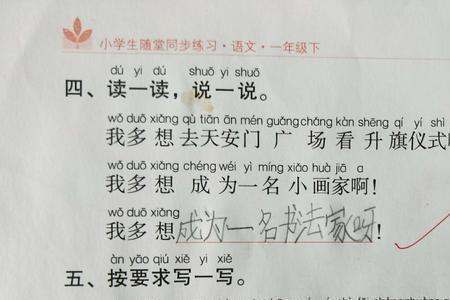 小学生随堂同步练习·语文·一年级下
dú yi dú shuō yi shuō
四、读一读，说一说。
wǒ duō xiǎng qù tiān ān mén guǎng chǎng kàn shēng qí yí shì
我多想去天安门广场看升旗仪式
wǒ duō xiǎng chéng wéi yì míng xiǎo huà jiā a
我多想成为一名小画家啊！
wǒ duō xiǎng
我多想成为一名书法家呀！
àn yāo qiú xiě yi xiě
五、按要求写一写。